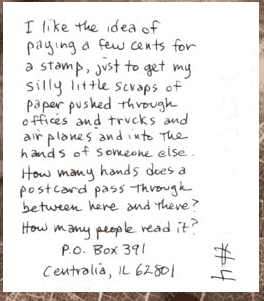 I like the idea of
paying a few cents for
a stamp, just to get my
silly little scraps of
paper pushed through
offices and trucks and
airplanes and into the
hands of someone else.
How many hands does a
postcard pass through
between here and there?
How many people read it?
P.O. Box 391
Centralia, IL 62801
#4